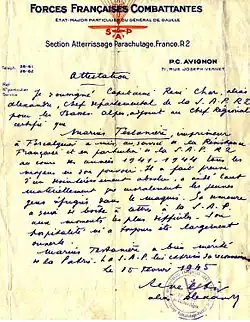 FORCES FRANÇAISES COMBATTANTES
ÉTAT-MAJOR PARTICULIER DU GÉNÉRAL DE GAULLE
S A P
Section Atterrissage Parachutage, France, R.2
TÉLÉPH.
P.C. AVIGNON
71, RUE JOSEPH VERNET
Attestation
Je soussigné Capitaine René Char, alias
Alexandre, Chef départemental de la S.A.P. R2
pour les Basses Alpes, adjoint au Chef Régional
certifie que
Marius Bardouin, imprimeur
à Forcalquier a mis au service de la Résistance
Française et en particulier de la S.A.P. R2
au cours des années 1941-1944 tous les
moyens en son pouvoir. Il a fait preuve
d'un dévouement absolu, a aidé tant
matériellement que moralement les jeunes
gens réfugiés dans le maquis. Sa demeure
a servi de boîte à lettres à la S.A.P.
aux moments les plus difficiles. Son
hospitalité m'a toujours été largement
ouverte.
Marius a bien mérité
de la Patrie. La S.A.P. lui exprime sa reconnaissance
le 15 février 1945
René Char
alias Alexandre